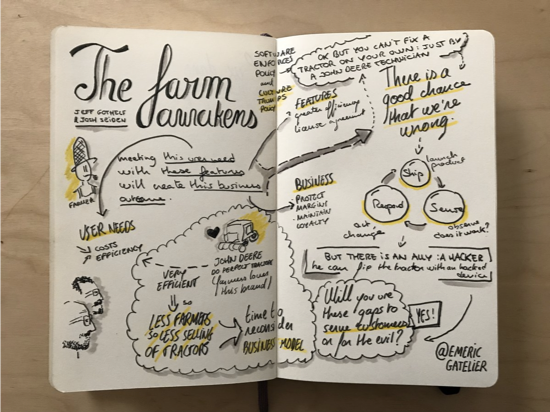 The farm
awakens
JEFF GOTHELF
& JOSH SEIDEN
FARMER
meeting this user need
with these features
will create this business
outcome.
USER NEEDS
COSTS
EFFICIENCY
JOHN DEERE
DO PERFECT TRACTORS
(farmers love
this brand)
VERY
EFFICIENT
so
LESS FARMERS
SO LESS SELLING
OF TRACTORS
time to
reconsider
BUSINESS MODEL
SOFTWARE
ENFORCES
POLICY
and
CULTURE
TRUMPS
POLICY
OK BUT YOU CAN'T FIX A
TRACTOR ON YOUR OWN: JUST BY
A JOHN DEERE TECHNICIAN
FEATURES
greater efficiency
license agreement
There is a
good chance
that we're
wrong.
BUSINESS
PROTECT
MARGINS
MAINTAIN
LOYALTY
Ship
launch
product
Respond
act
change
Sense
observe
does it work?
BUT THERE IS AN ALLY: A HACKER
he can fix the tractor with an hacked
device
Will you use
these gaps to
serve customers
or for the evil?
YES!
@EMERIC
GATELIER